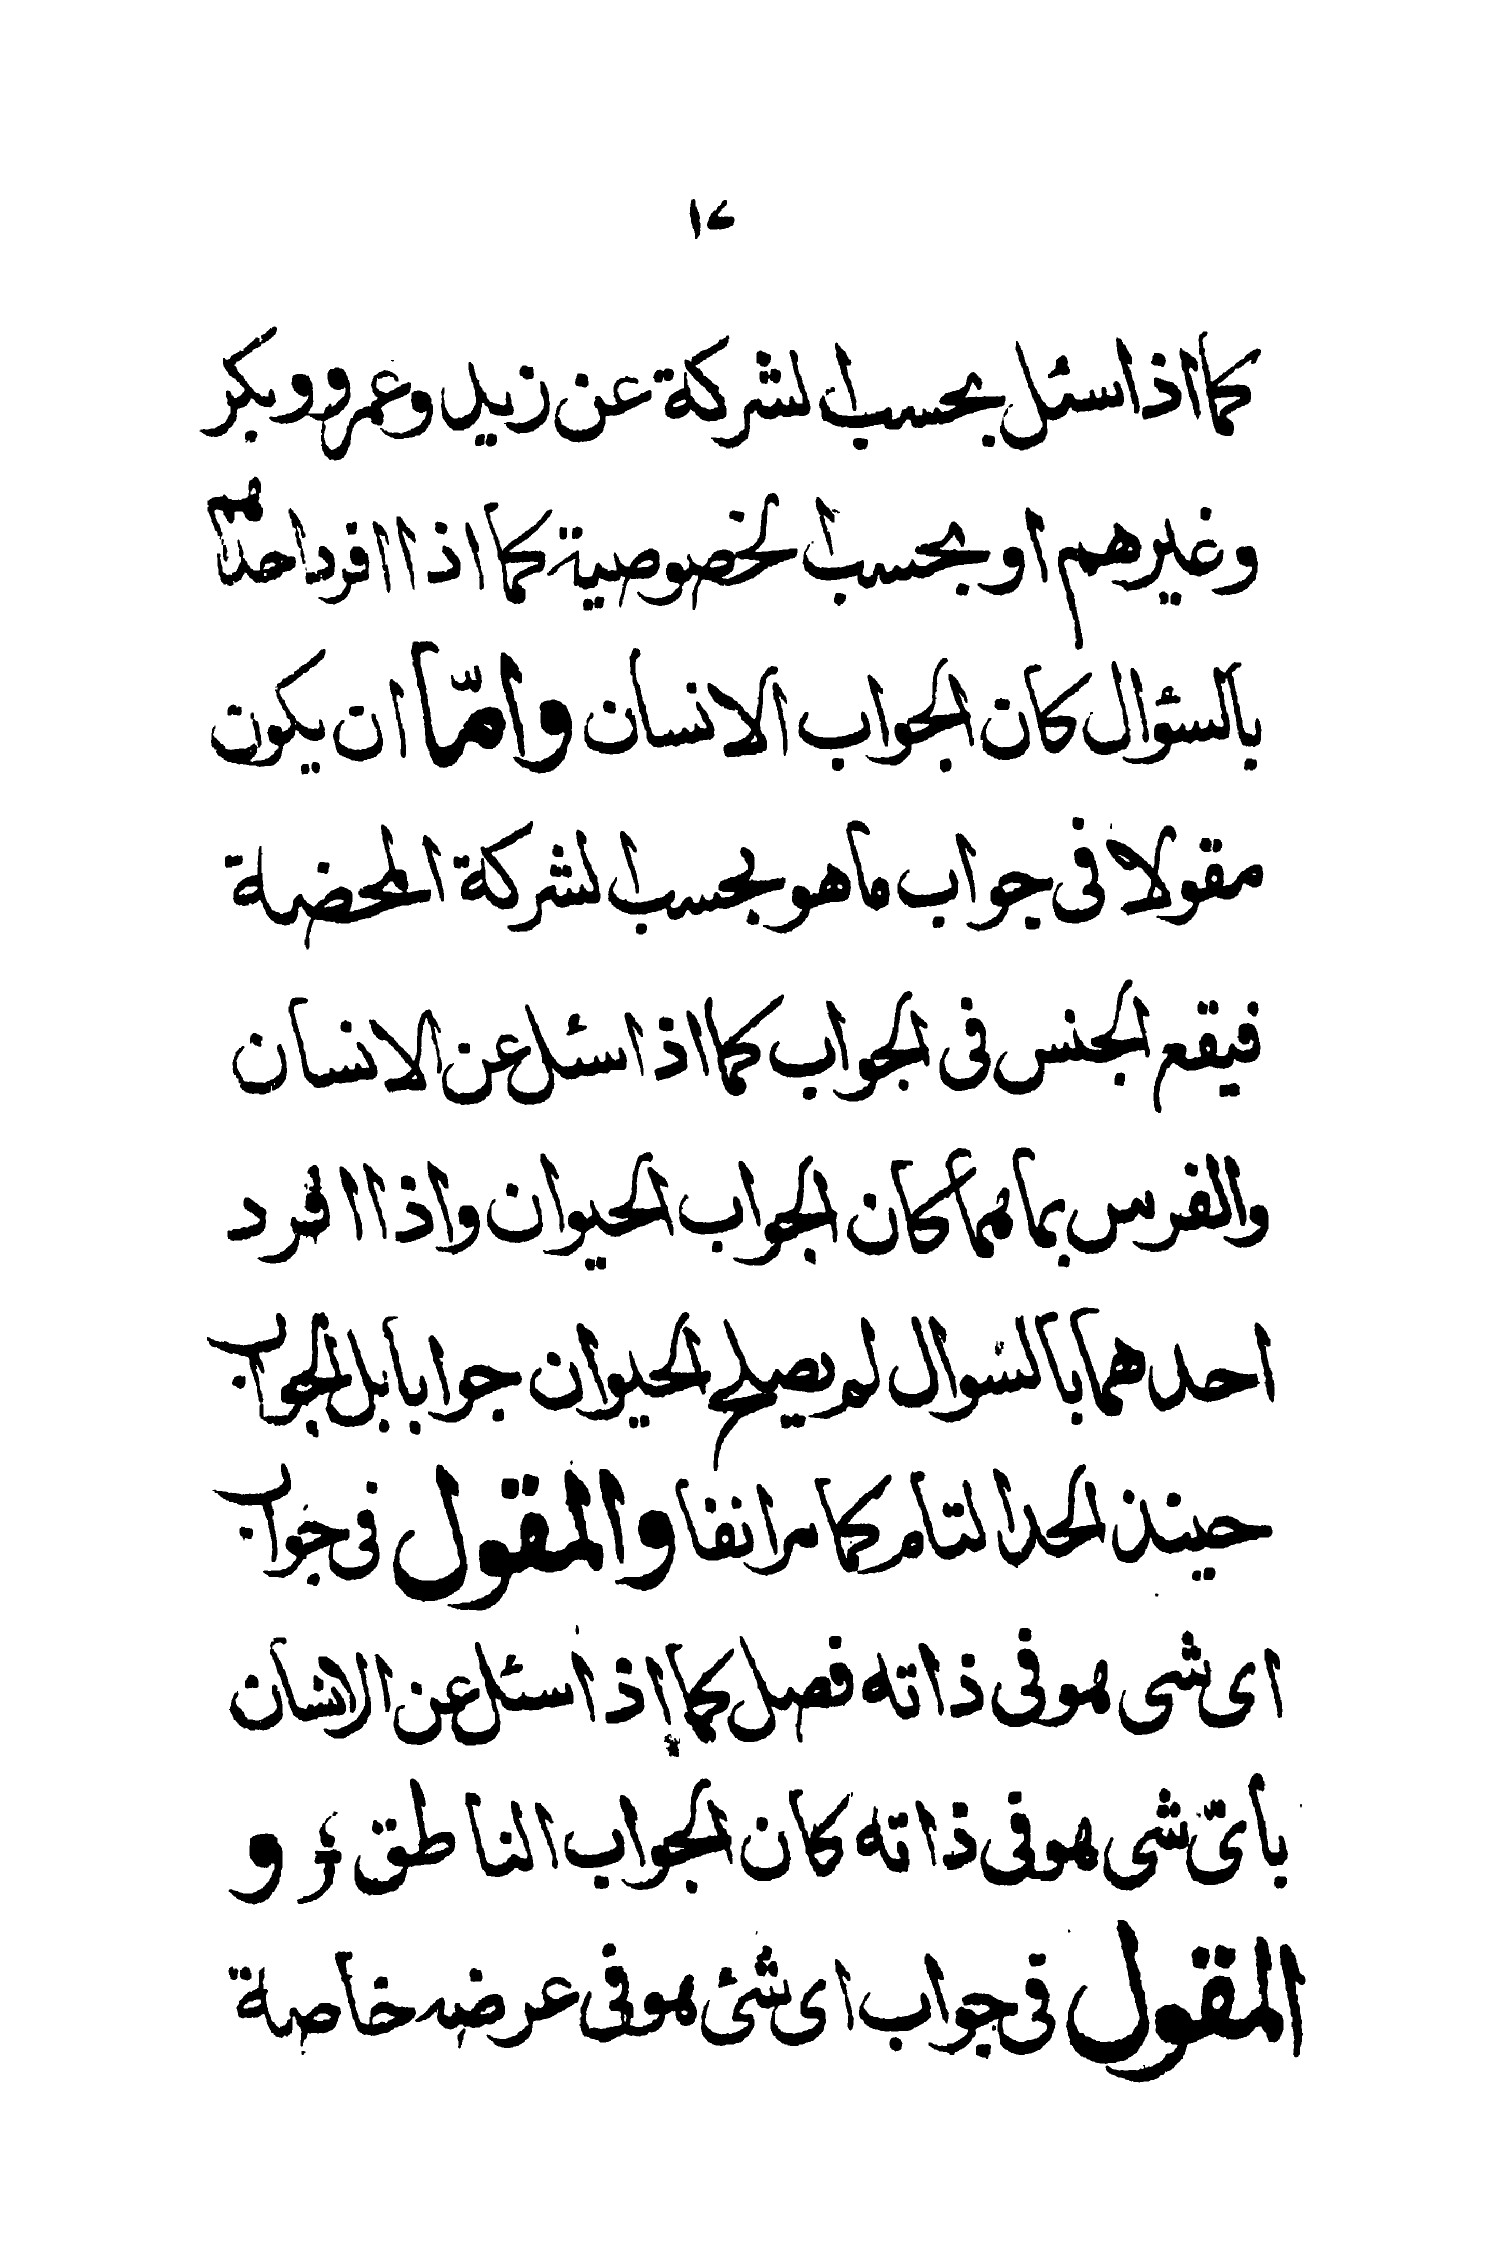 ١٧
كما اذا سئل بحسب الشركة عن زيد وعمرو وبكر
وغيرهم او بحسب الخصوصية كما اذا افرد احدهم
بالسؤال كان الجواب الانسان وامّا ان يكون
مقولا فى جواب ما هو بحسب الشركة المحضة
فيقع الجنس فى الجواب كما اذا سئل عن الانسان
والفرس بما هما كان الجواب الحيوان واذا افرد
احدهما بالسوال لم يصلح الحيوان جوابا بل الجواب
حينئذ الحد التام كما مر انفا والمقول فى جواب
اى شى هو فى ذاته فصل كما إذا سئل عن الانسان
باىّ شى هو فى ذاته كان الجواب الناطق و
المقول فى جواب اى شئ هو فى عرضه خاصة